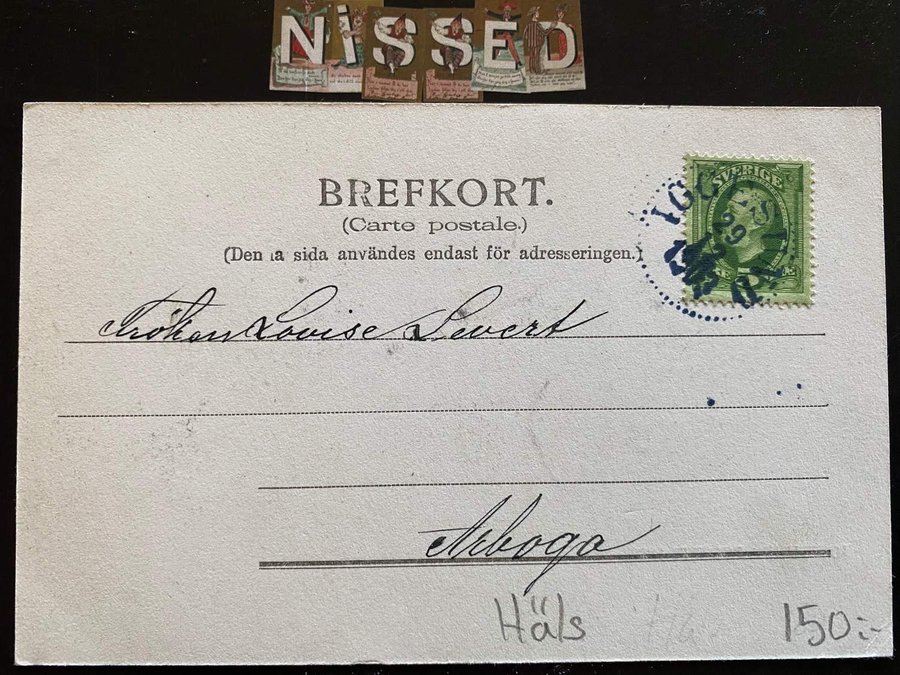 NISSED
BREFKORT.
(Carte postale.)
(Den na sida användes endast för adresseringen.)
SVERIGE
29
Fröken Lovise Levert
Arboga
Häls
150:-